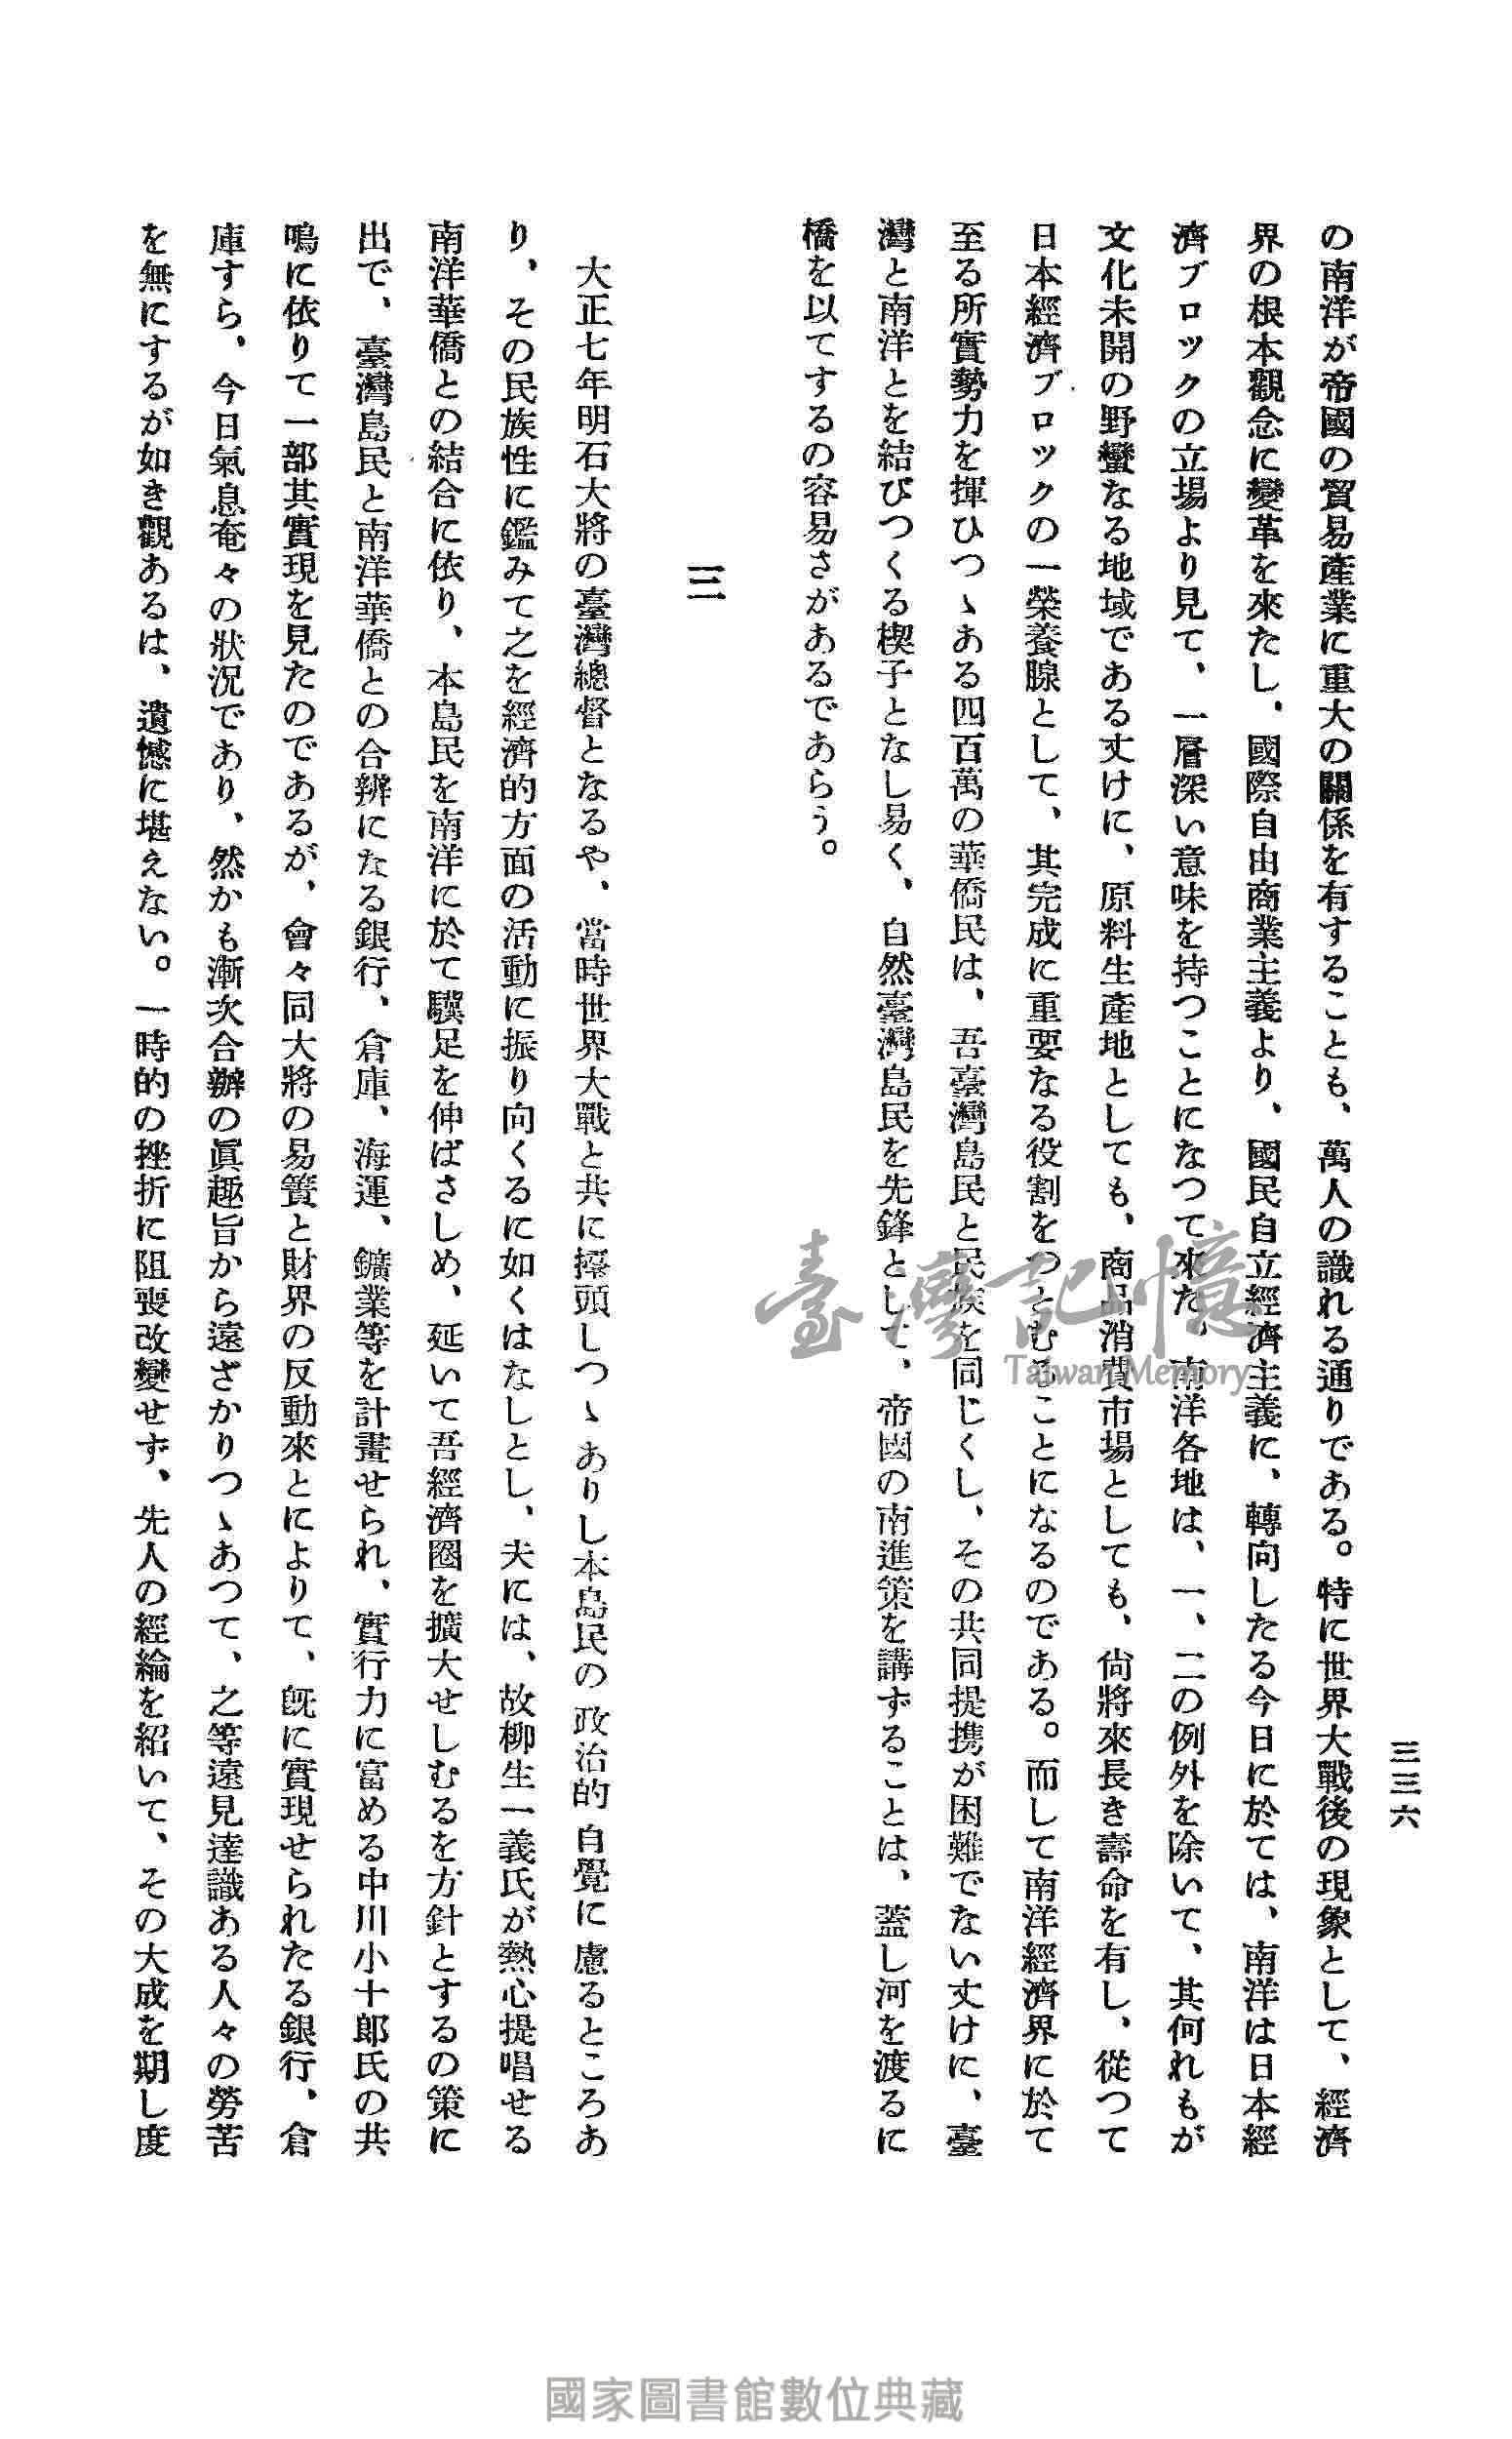 三三六
の南洋が帝國の貿易產業に重大の關係を有することも、萬人の識れる通りである。特に世界大戰後の現象として、經濟
界の根本觀念に變革を來たし、國際自由商業主義より、國民自立經濟主義に、轉向したる今日に於ては、南洋は日本經
濟ブロックの立場より見て、一層深い意味を持つことになつて來た、南洋各地は、一、二の例外を除いて、其何れもが
文化未開の野蠻なる地域である丈けに、原料生產地としても、商品消費市場としても、尙將來長き壽命を有し、從つて
日本經濟ブロックの一榮養腺として、其完成に重要なる役割をつとむることになるのである。而して南洋經濟界に於て
至る所實勢力を揮ひつゝある四百萬の華僑民は、吾臺灣島民と民族を同じくし、その共同提携が困難でない丈けに、臺
灣と南洋とを結びつくる楔子となし易く、自然臺灣島民を先鋒として、帝國の南進策を講ずることは、蓋し河を渡るに
橋を以てするの容易さがあるであらう。
三
大正七年明石大將の臺灣總督となるや、當時世界大戰と共に擡頭しつゝありし本島民の政治的自覺に慮るところあ
り、その民族性に鑑みて之を經濟的方面の活動に振り向くるに如くはなしとし、夫には、故柳生一義氏が熱心提唱せる
南洋華僑との結合に依り、本島民を南洋に於て驥足を伸ばさしめ、延いて吾經濟圈を擴大せしむるを方針とするの策に
出で、臺灣島民と南洋華僑との合辨になる銀行、倉庫、海運、鑛業等を計畫せられ、實行力に富める中川小十郎氏の共
鳴に依りて一部其實現を見たのであるが、會々同大將の易簀と財界の反動來とによりて、旣に實現せられたる銀行、倉
庫すら、今日氣息奄々の狀況であり、然かも漸次合辦の眞趣旨から遠ざかりつゝあつて、之等遠見達識ある人々の勞苦
を無にするが如き觀あるは、遺憾に堪えない。一時的の挫折に阻喪改變せず、先人の經綸を紹いで、その大成を期し度
臺灣記憶
Taiwan Memory
國家圖書館數位典藏